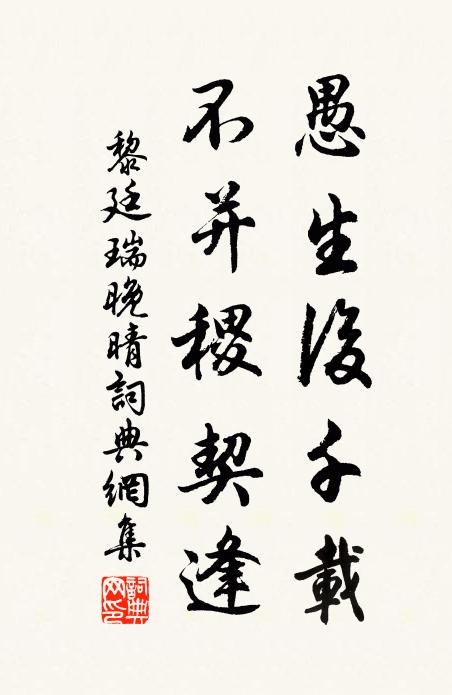 愚生後千載
不并稷契逢
黎廷瑞晚晴詞典網集
詞典網印